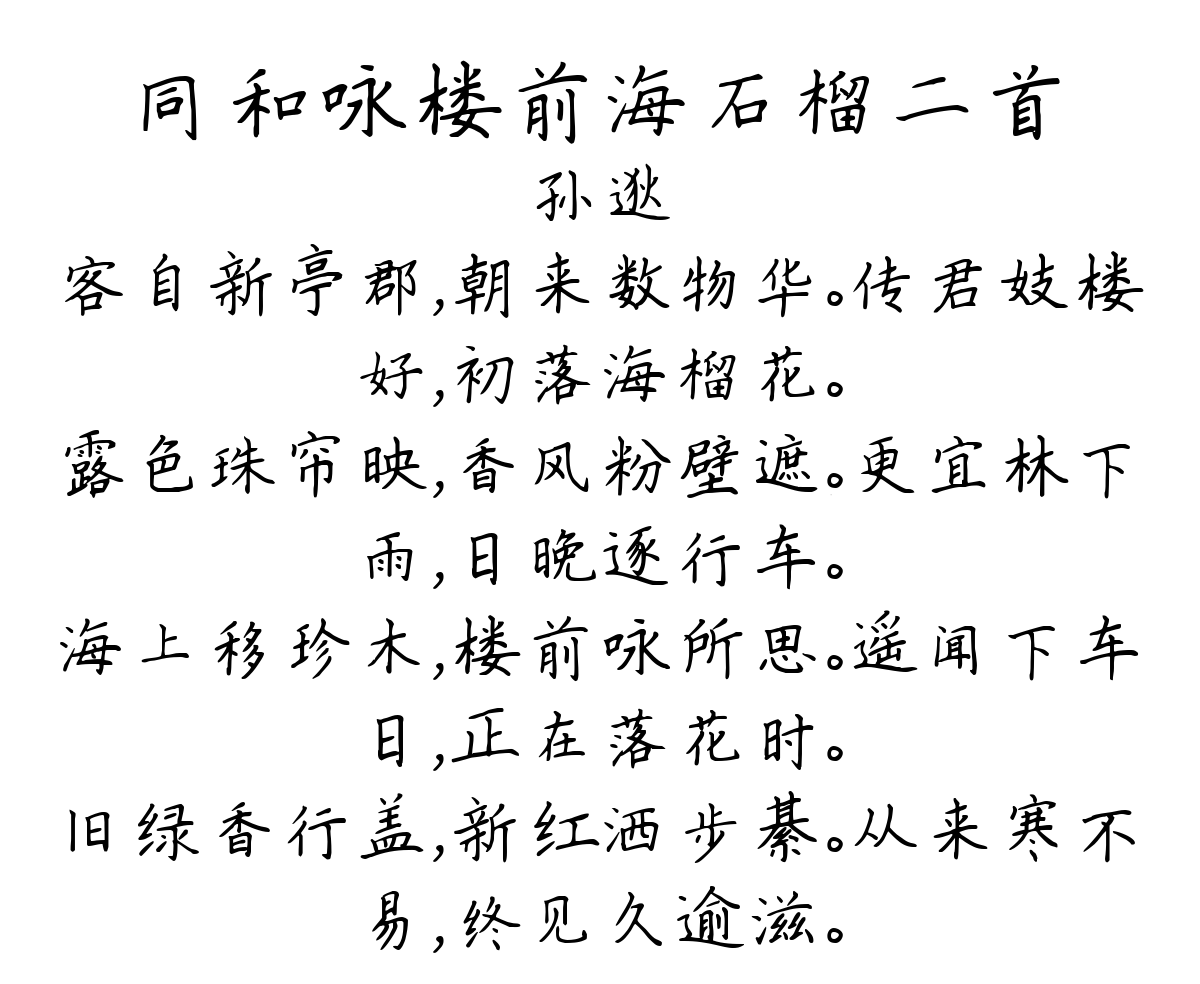 同和咏楼前海石榴二首
孙逖
客自新亭郡,朝来数物华。传君妓楼
好,初落海榴花。
露色珠帘映,香风粉壁遮。更宜林下
雨,日晚逐行车。
海上移珍木,楼前咏所思。遥闻下车
日,正在落花时。
旧绿香行盖,新红洒步綦。从来寒不
易,终见久逾滋。